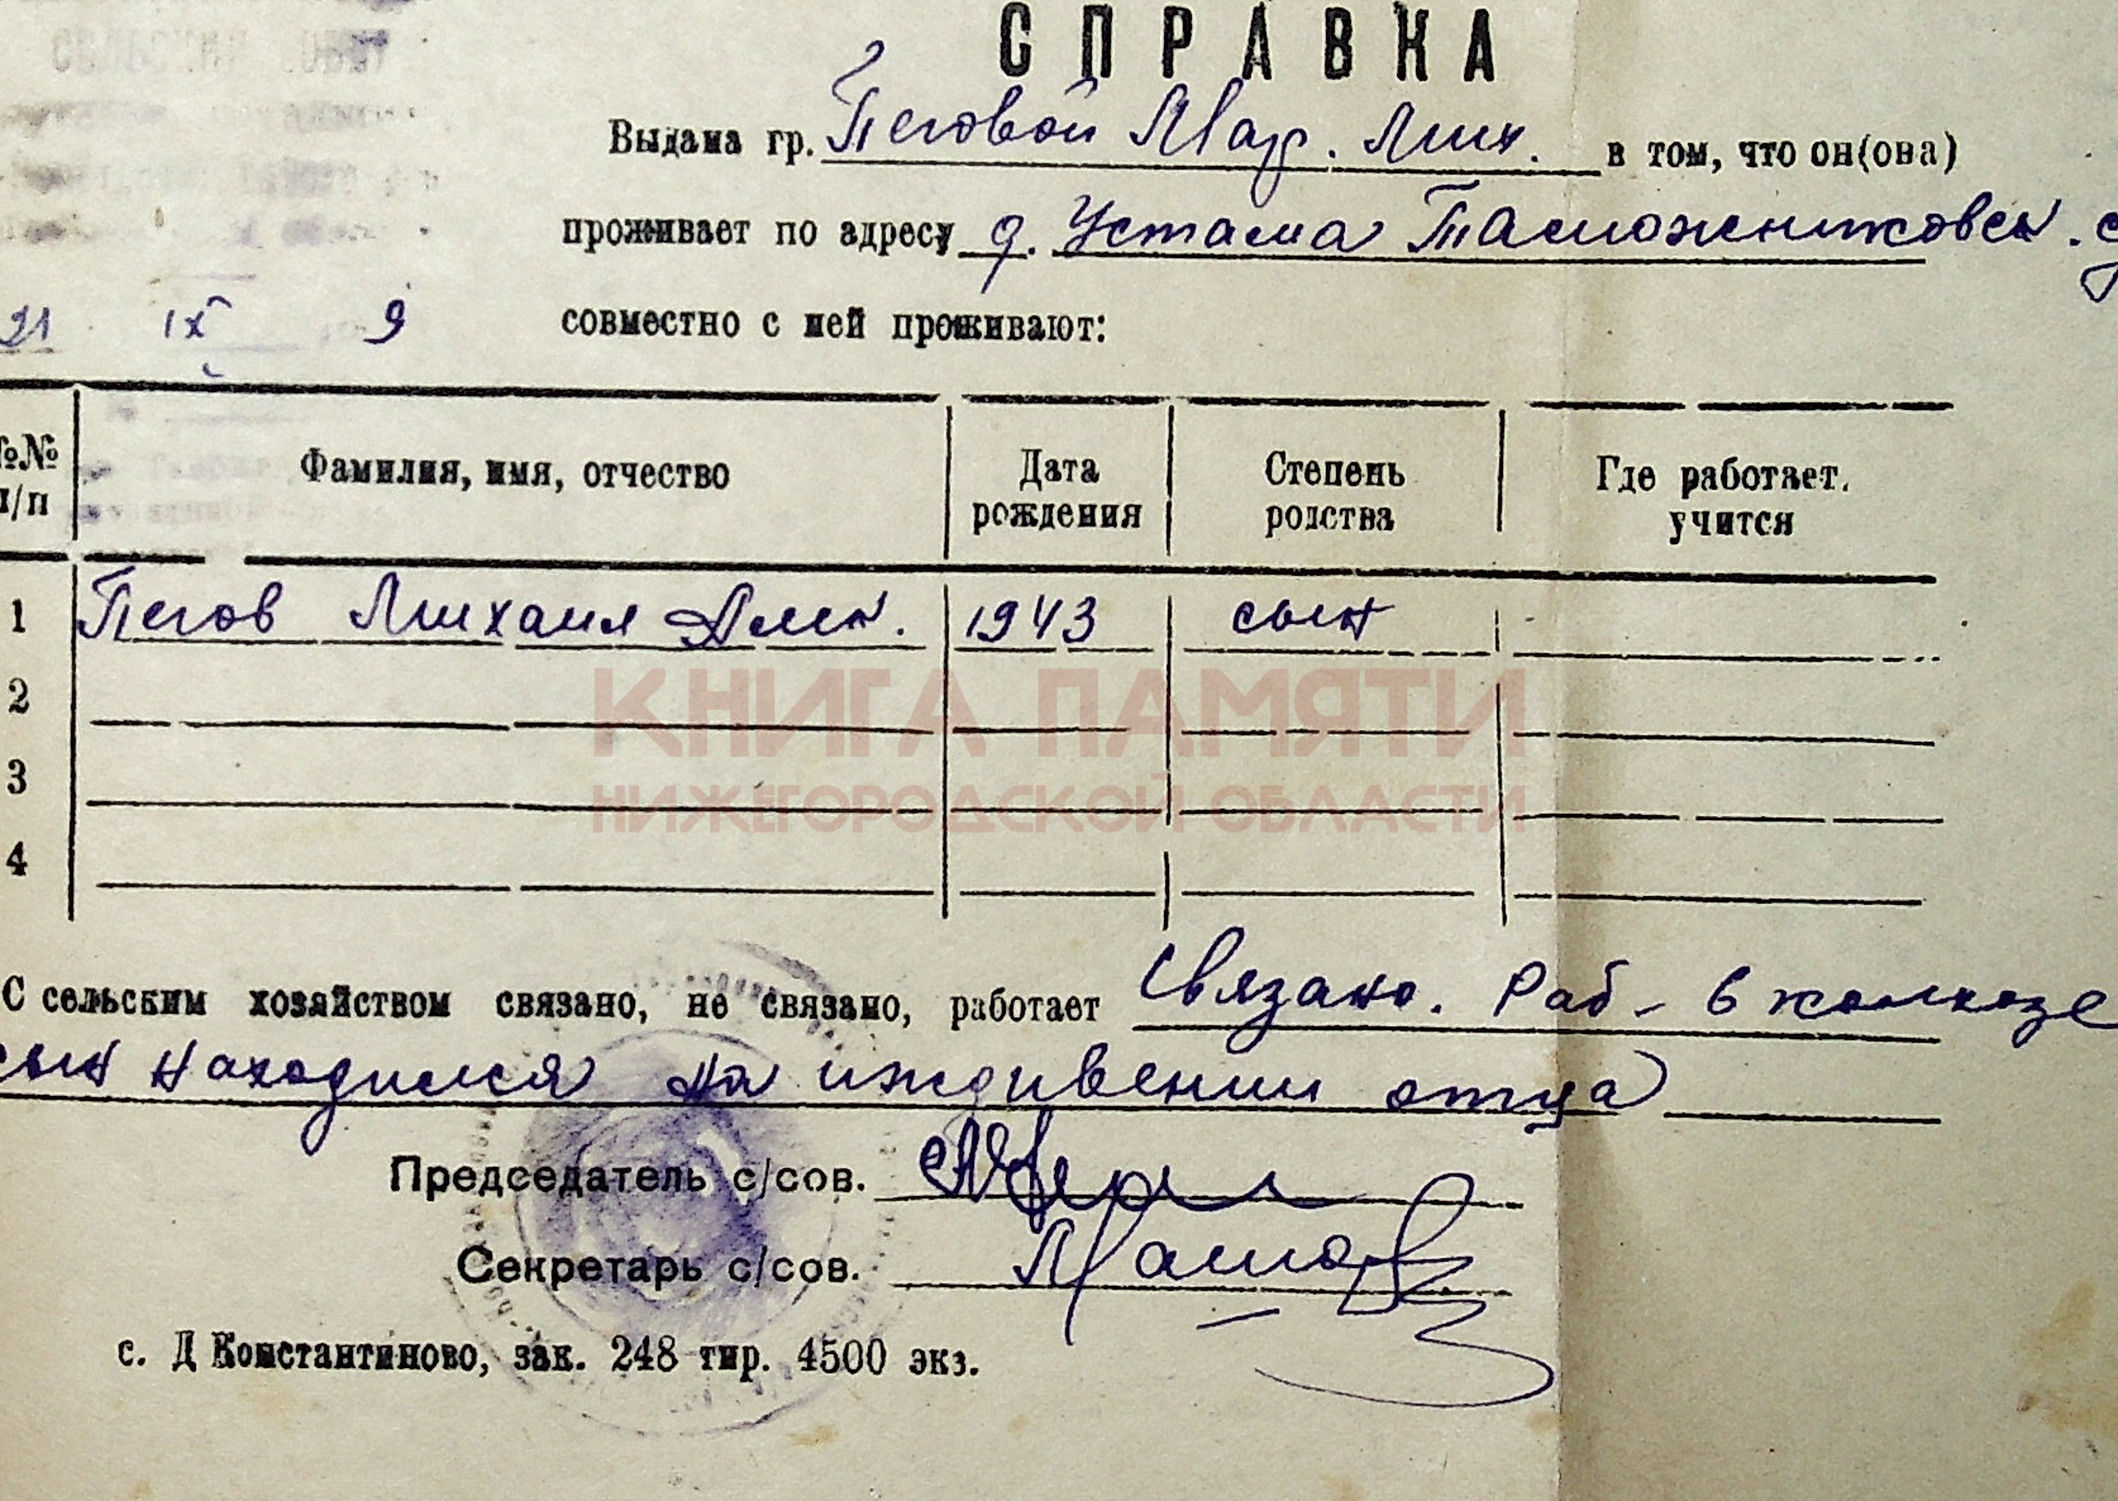 СПРАВКА
Выдана гр. Пеговой Мар. Мих. в том, что он(она)
проживает по адресу д. Устама Таможниковск. с
21 IX 9
совместно с ней проживают:
№№ п/п Фамилия, имя, отчество Дата рождения Степень родства Где работает, учится
1 Пегов Михаил Алек. 1943 сын
2
КНИГА ПАМЯТИ
3
НИЖЕГОРОДСКОЙ ОБЛАСТИ
4
С сельским хозяйством связано, не связано, работает Связано. Раб- в колхозе
сын находился на иждивении отца
Председатель с/сов.
Секретарь с/сов.
с. Д Константиново, зак. 248 тир. 4500 экз.